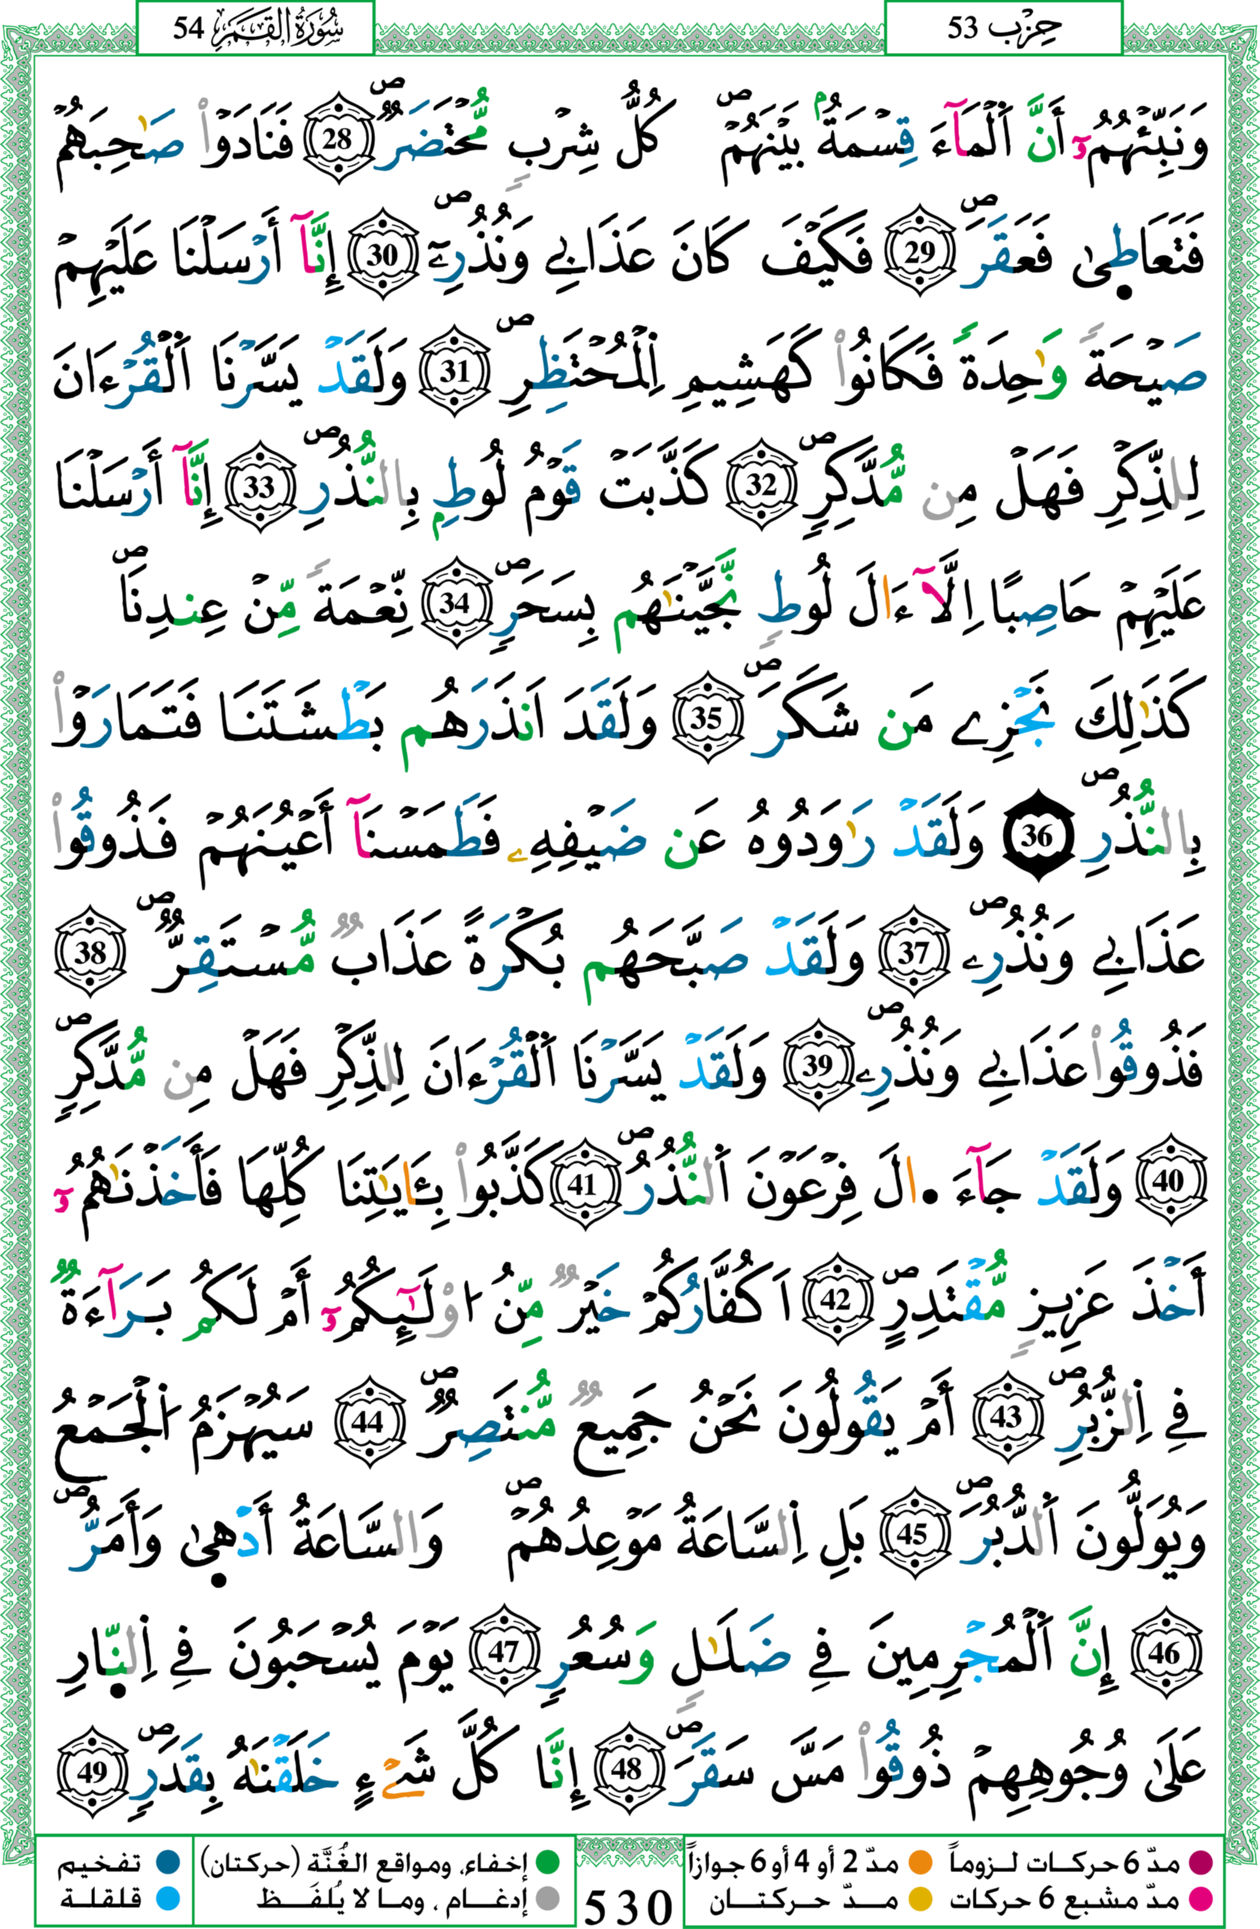 حِزْب 53
سُورَةُ القَمَر 54
وَنَبِّئْهُمُۥٓ أَنَّ اَ۬لْمَآءَ قِسْمَةُۢ بَيْنَهُمْۖ كُلُّ شِرْبٖ مُّحْتَضَرٞۖ 28 فَنَادَوْاْ صَٰحِبَهُمْ
فَتَعَاط۪ىٰ فَعَقَرَۖ 29 فَكَيْفَ كَانَ عَذَابِے وَنُذُرِۦٓۖ 30 إِنَّآ أَرْسَلْنَا عَلَيْهِمْ
صَيْحَةٗ وَٰحِدَةٗ فَكَانُواْ كَهَشِيمِ اِ۬لْمُحْتَظِرِۖ 31 وَلَقَدْ يَسَّرْنَا اَ۬لْقُرْءَانَ
لِلذِّكْرِ فَهَلْ مِن مُّدَّكِرٖۖ 32 كَذَّبَتْ قَوْمُ لُوطِۢ بِالنُّذُرِۖ 33 إِنَّآ أَرْسَلْنَا
عَلَيْهِمْ حَاصِباً اِلَّآ ءَالَ لُوطٖ نَّجَّيْنَٰهُم بِسَحَرٖۖ 34 نِّعْمَةٗ مِّنْ عِندِنَاۖ
كَذَٰلِكَ نَجْزِے مَن شَكَرَۖ 35 وَلَقَدَ اَنذَرَهُم بَطْشَتَنَا فَتَمَارَوْاْ
بِالنُّذُرِۖ 36 وَلَقَدْ رَٰوَدُوهُ عَن ضَيْفِهِۦ فَطَمَسْنَآ أَعْيُنَهُمْ فَذُوقُواْ
عَذَابِے وَنُذُرِۦۖ 37 وَلَقَدْ صَبَّحَهُم بُكْرَةً عَذَابٞ مُّسْتَقِرّٞۖ 38
فَذُوقُواْ عَذَابِے وَنُذُرِۦۖ 39 وَلَقَدْ يَسَّرْنَا اَ۬لْقُرْءَانَ لِلذِّكْرِ فَهَلْ مِن مُّدَّكِرٖۖ
40 وَلَقَدْ جَآءَ ا۬لَ فِرْعَوْنَ اَ۬لنُّذُرُۖ 41 كَذَّبُواْ بِـَٔايَٰتِنَا كُلِّهَا فَأَخَذْنَٰهُمُۥٓ
أَخْذَ عَزِيزٖ مُّقْتَدِرٍۖ 42 اَكُفَّارُكُمْ خَيْرٞ مِّنُ ا۟وْلَٰٓئِكُمُۥٓ أَمْ لَكُم بَرَآءَةٞ
فِے اِ۬لزُّبُرِۖ 43 أَمْ يَقُولُونَ نَحْنُ جَمِيعٞ مُّنتَصِرٞۖ 44 سَيُهْزَمُ اُ۬لْجَمْعُ
وَيُوَلُّونَ اَ۬لدُّبُرَۖ 45 بَلِ اِ۬لسَّاعَةُ مَوْعِدُهُمْۖ وَالسَّاعَةُ أَدْه۪ىٰ وَأَمَرُّۖ
46 إِنَّ اَ۬لْمُجْرِمِينَ فِے ضَلَٰلٖ وَسُعُرٖ 47 يَوْمَ يُسْحَبُونَ فِے اِ۬لنّ۪ارِ
عَلَىٰ وُجُوهِهِمْ ذُوقُواْ مَسَّ سَقَرَۖ 48 إِنَّا كُلَّ شَےْءٍ خَلَقْنَٰهُ بِقَدَرٖۖ 49
مدّ 6 حركات لـزوماً مدّ 2 أو 4 أو 6 جوازاً إخفاء، ومواقع الغُنَّة (حركتان) تفخيم
مدّ مشبع 6 حركات مـدّ حركتـان 530 إدغـام ، ومـا لا يُلفَـظ قلقلـة